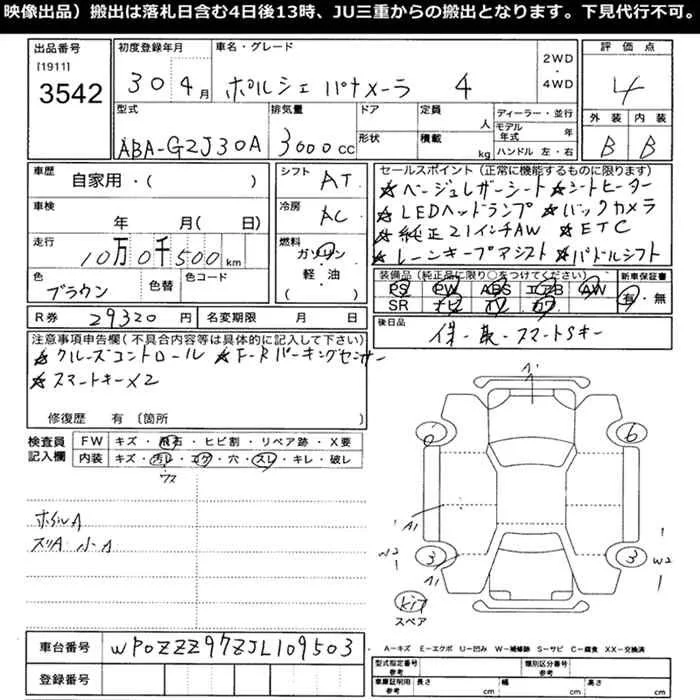 映像出品）搬出は落札日含む4日後13時、JU三重からの搬出となります。下見代行不可。
出品番号
[1911]
3542
初度登録年月
30 4月
車名・グレード
ポルシェ パナメーラ 4
2WD
・
4WD
評価点
4
外装 内装
B B
型式
ABA-G2J30A
排気量
3000cc
ドア
形状
定員 人
積載 kg
ディーラー・並行
モデル年式 年
ハンドル 左・右
車歴
自家用・( )
車検
年 月( 日)
走行
10万0千500km
色
ブラウン
色替
色コード
シフト
AT
冷房
AC
燃料
ガソリン
軽・油
( )
セールスポイント（正常に機能するものに限ります）
★ベージュレザーシート ★シートヒーター
★LEDヘッドランプ ★バックカメラ
★純正21インチAW ★ETC
★レーンキープアシスト ★パドルシフト
装備品（純正品に限り○をつけてください）
PS PW ABS エアB AW
SR ナビ TV カワ
新車保証書
有・無
R券 29320円
名変期限 月 日
後日品
保・取・スマートSキー
注意事項申告欄（不具合内容等は具体的に記入して下さい）
★クルーズコントロール ★F・Rパーキングセンサー
★スマートキー×2
修復歴 有〔箇所 〕
検査員
記入欄
FW キズ・飛石・ヒビ割・リペア跡・X要
内装 キズ・汚レ・コゲ・穴・スレ・キレ・破レ
ウス
ホイルA
スリA 小A
A1
W2
3
A1
6
3
W2
kit
スペア
車台番号
WP0ZZZ97ZJL109503
登録番号
A−キズ E−エクボ U−凹み W−補修跡 S−サビ C−腐食 XX−交換済
型式指定番号
参考
類別区分番号
参考
車庫証明用
参考
長さ cm
幅 cm
高さ cm